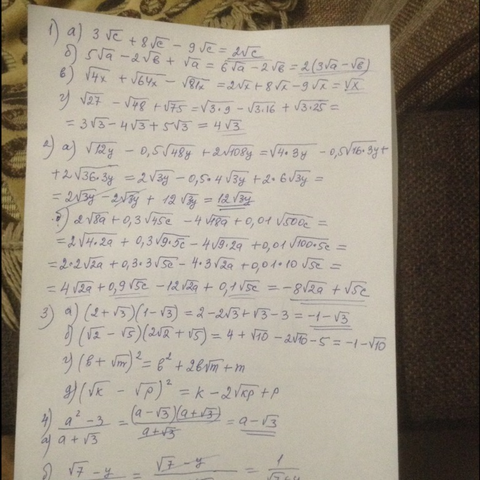 1) а) 3√c + 8√c - 9√c = 2√c
б) 5√a - 2√b + √a = 6√a - 2√b = 2(3√a - √b)
в) √4x + √64x - √81x = 2√x + 8√x - 9√x = √x
г) √27 - √48 + √75 = √3·9 - √3·16 + √3·25 =
= 3√3 - 4√3 + 5√3 = 4√3
2) а) √12y - 0,5√48y + 2√108y = √4·3y - 0,5√16·3y +
+ 2√36·3y = 2√3y - 0,5·4√3y + 2·6√3y =
= 2√3y - 2√3y + 12√3y = 12√3y
б) 2√8a + 0,3√45c - 4√18a + 0,01√500c =
= 2√4·2a + 0,3√9·5c - 4√9·2a + 0,01√100·5c =
= 2·2√2a + 0,3·3√5c - 4·3√2a + 0,01·10√5c =
= 4√2a + 0,9√5c - 12√2a + 0,1√5c = -8√2a + √5c
3) а) (2+√3)(1-√3) = 2 - 2√3 + √3 - 3 = -1 - √3
б) (√2 - √5)(2√2 + √5) = 4 + √10 - 2√10 - 5 = -1 - √10
г) (b + √m)² = b² + 2b√m + m
д) (√k - √p)² = k - 2√kp + p
4) а) a² - 3 / a + √3 = (a - √3)(a + √3) / a + √3 = a - √3
б) √7 - y = √7 - y = 1